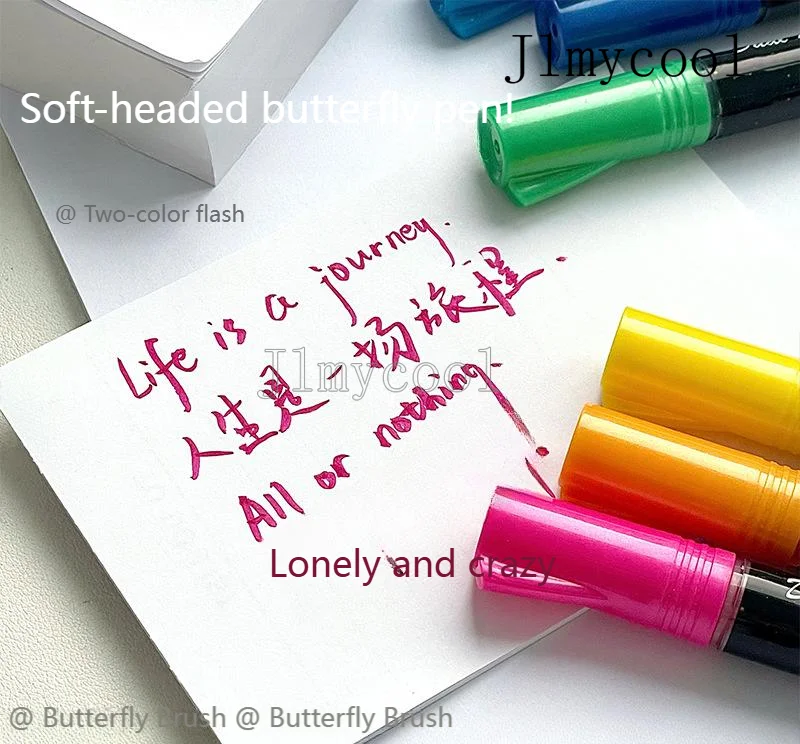 Jlmycool
Soft-headed butterfly pen!
@ Two-color flash
Life is a journey.
人生是一场旅程.
Jlmycool
All or nothing.
Lonely and crazy
@ Butterfly Brush @ Butterfly Brush